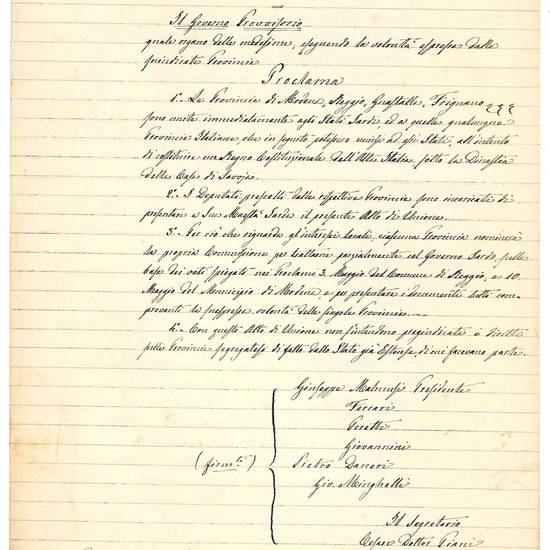 Il Governo Provvisorio
quale organo delle medesime, eseguendo la volontà espressa dalle
preindicate Provincie
Proclama
1.° Le Provincie di Modena, Reggio, Guastalla, Frignano
sono unite immediatamente agli Stati Sardi ed a quelle qualunque
Provincie Italiane, che in seguito potessero unirsi ad essi Stati, all'intento
di costituire un Regno Costituzionale dell'Alta Italia sotto la Dinastia
della Casa di Savoja.
2.° I Deputati prescelti dalle rispettive Provincie sono incaricati di
presentare a Sua Maestà Sarda il presente Atto di Unione.
3.° Per ciò che riguarda gl'interessi locali, ciascuna Provincia nominerà
la propria Commissione per trattare parzialmente col Governo Sardo sulle
basi dei voti spiegati nei Proclami 3. Maggio del Comune di Reggio, e 10.
Maggio del Municipio di Modena, e per presentare i documenti tutti com-
provanti la espressa volontà delle singole Provincie.
4.° Con questo Atto di Unione non s'intendono pregiudicati i diritti
sulle Provincie segregatesi di fatto dallo Stato già Estense di cui facevano parte.
Giuseppe Malmusi Presidente
Ferrari
Peretti
Giovannini
(firm.ti) Pietro Daneri
Gio. Minghelli
Il Segretario
Cesare Dottor